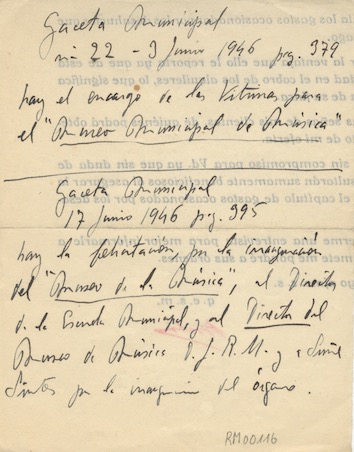 Gaceta Municipal
nº 22 - 3 Junio 1946 pag. 379
hay el encargo de las Vitrinas para
el "Museo Municipal de Música"
Gaceta Municipal
17 Junio 1946 pag. 395
hay la felicitación, por la inauguración
del "Museo de la Música", al Director
de la Escuela Municipal, y al Director del
Museo de Música D. J. R. M. y a
por la inauguración del órgano.
RM00116